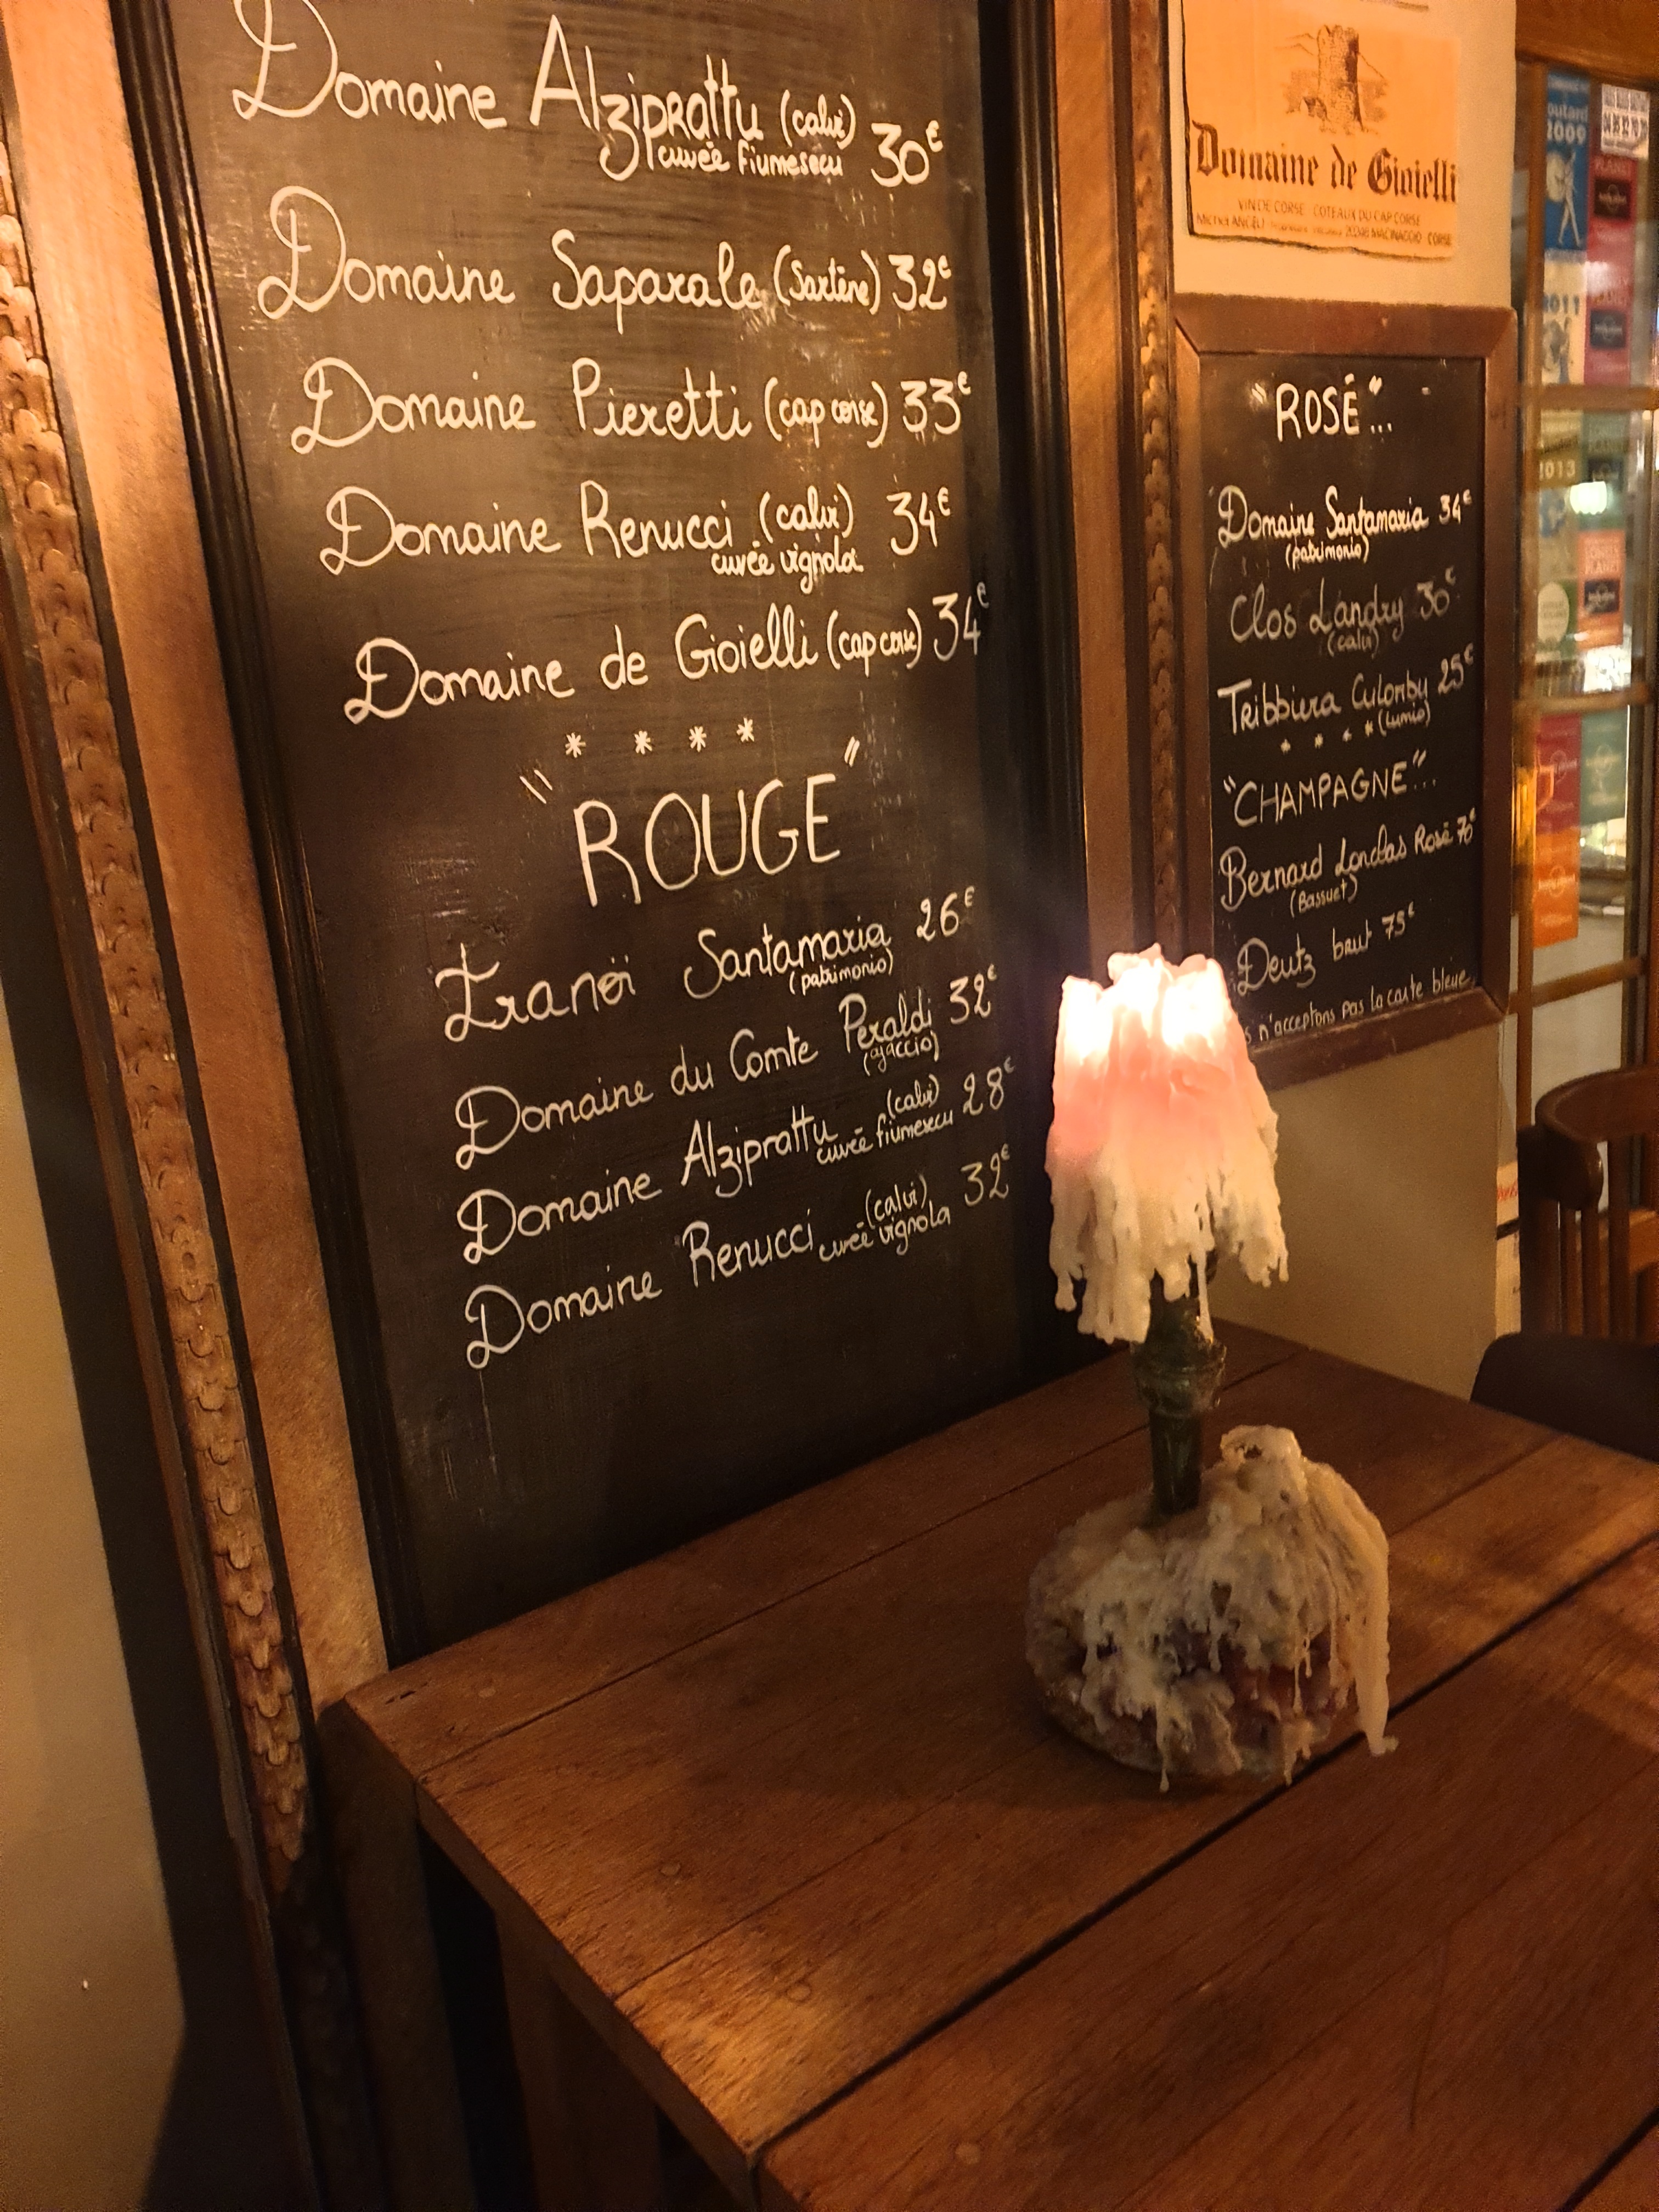 Domaine Alziprattu (calvi) 30€
cuvée fiumesecu
Domaine Saparale (Sartène) 32€
Domaine Pieretti (cap corse) 33€
Domaine Renucci (calvi) 34€
cuvée vignola
Domaine de Gioielli (cap corse) 34€
* * * *
"ROUGE"
Santamaria 26€
(patrimonio)
Domaine du Comte Peraldi 32€
(ajaccio)
Domaine Alziprattu (calvi) 28€
cuvée fiumesecu
Domaine Renucci (calvi) 32€
cuvée vignola
Domaine de Gioielli
VIN DE CORSE COTEAUX DU CAP CORSE
Michel ANGELI 20248 MACINAGGIO CORSE
"ROSÉ"...
Domaine Santamaria 34€
(patrimonio)
Clos Landry 30€
(calvi)
Tribbiera Culomby 25€
* * * * (Lumio)
"CHAMPAGNE"...
Bernard Londas Rosé 70€
(Bassuet)
Deutz brut 75€
s n'acceptons pas la carte bleue
outard
2009
2011
2013